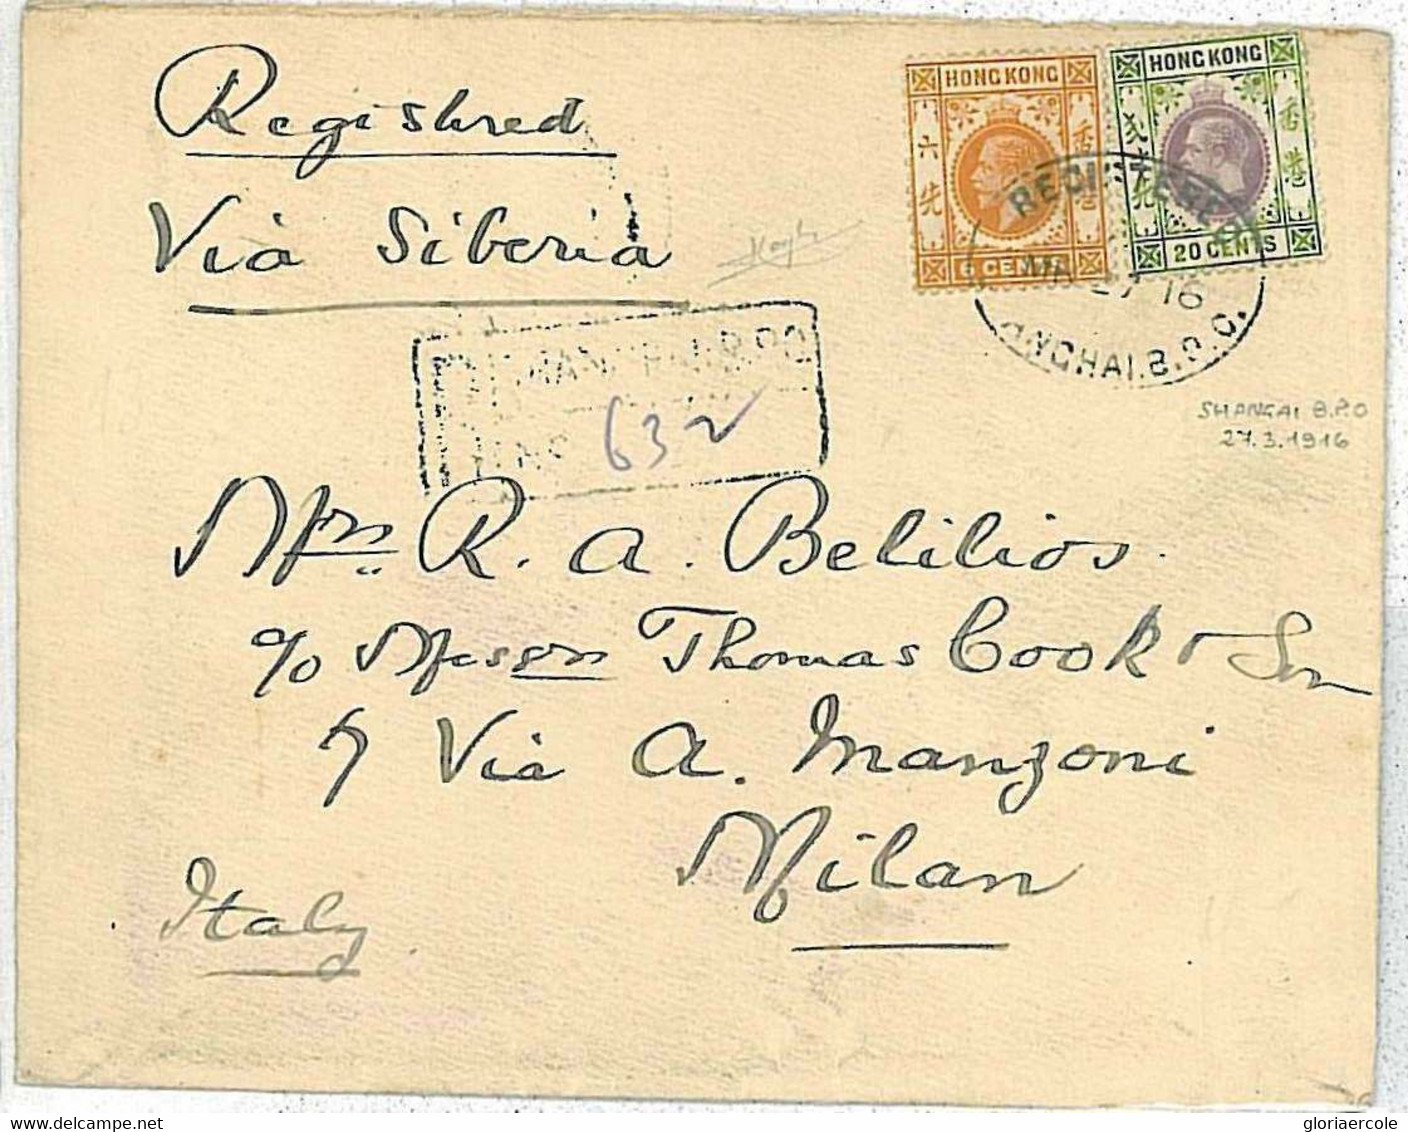 Registered
Via Siberia
HONG KONG
香港
六先
6 CENTS
HONG KONG
香港
20 CENTS
REGISTERED
27 16
ANGHAI.B.P.O.
SHANGAI B.P.O
27.3.1916
632
Mrs. R. A. Belilios.
c/o Messrs Thomas Cook & Son
7 Via A. Manzoni
Milan
Italy
gloriaercole